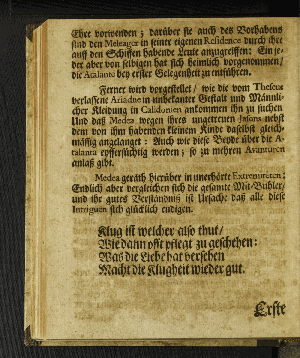 Ehre vorwenden; darüber sie auch des Vorhabens
sind den Meleager in seiner eigenen Residence durch ihre
auff den Schiffen habende Leute anzugreiffen: Ein je-
der aber von selbigen hat sich heimlich vorgenommen/
die Atalante bey erster Gelegenheit zu entführen.
Ferner wird vorgestellet / wie die vom Theseus
verlassene Ariadne in unbekanter Gestalt und Männli-
cher Kleidung in Calidonien ankommen ihn zu suchen
Und daß Medea wegen ihres ungetreuen Jasons nebst
dem von ihm habenden kleinem Kinde daselbst gleich-
mäßig angelanget: Auch wie diese Beyde über die A-
talanta eyffersüchtig werden; so zu mehren Avanturen
anlaß gibt.
Medea geräth hierüber in unerhörte Extremiteten;
Endlich aber vergleichen sich die gesamte Mit-Buhler/
und ihr gutes Verständniß ist Ursache daß alle diese
Intriguen sich glücklich endigen.
Klug ist welcher also thut/
Wie dann offt pflegt zu geschehen:
Was die Liebe hat versehen
Macht die Klugheit wieder gut.
Erste